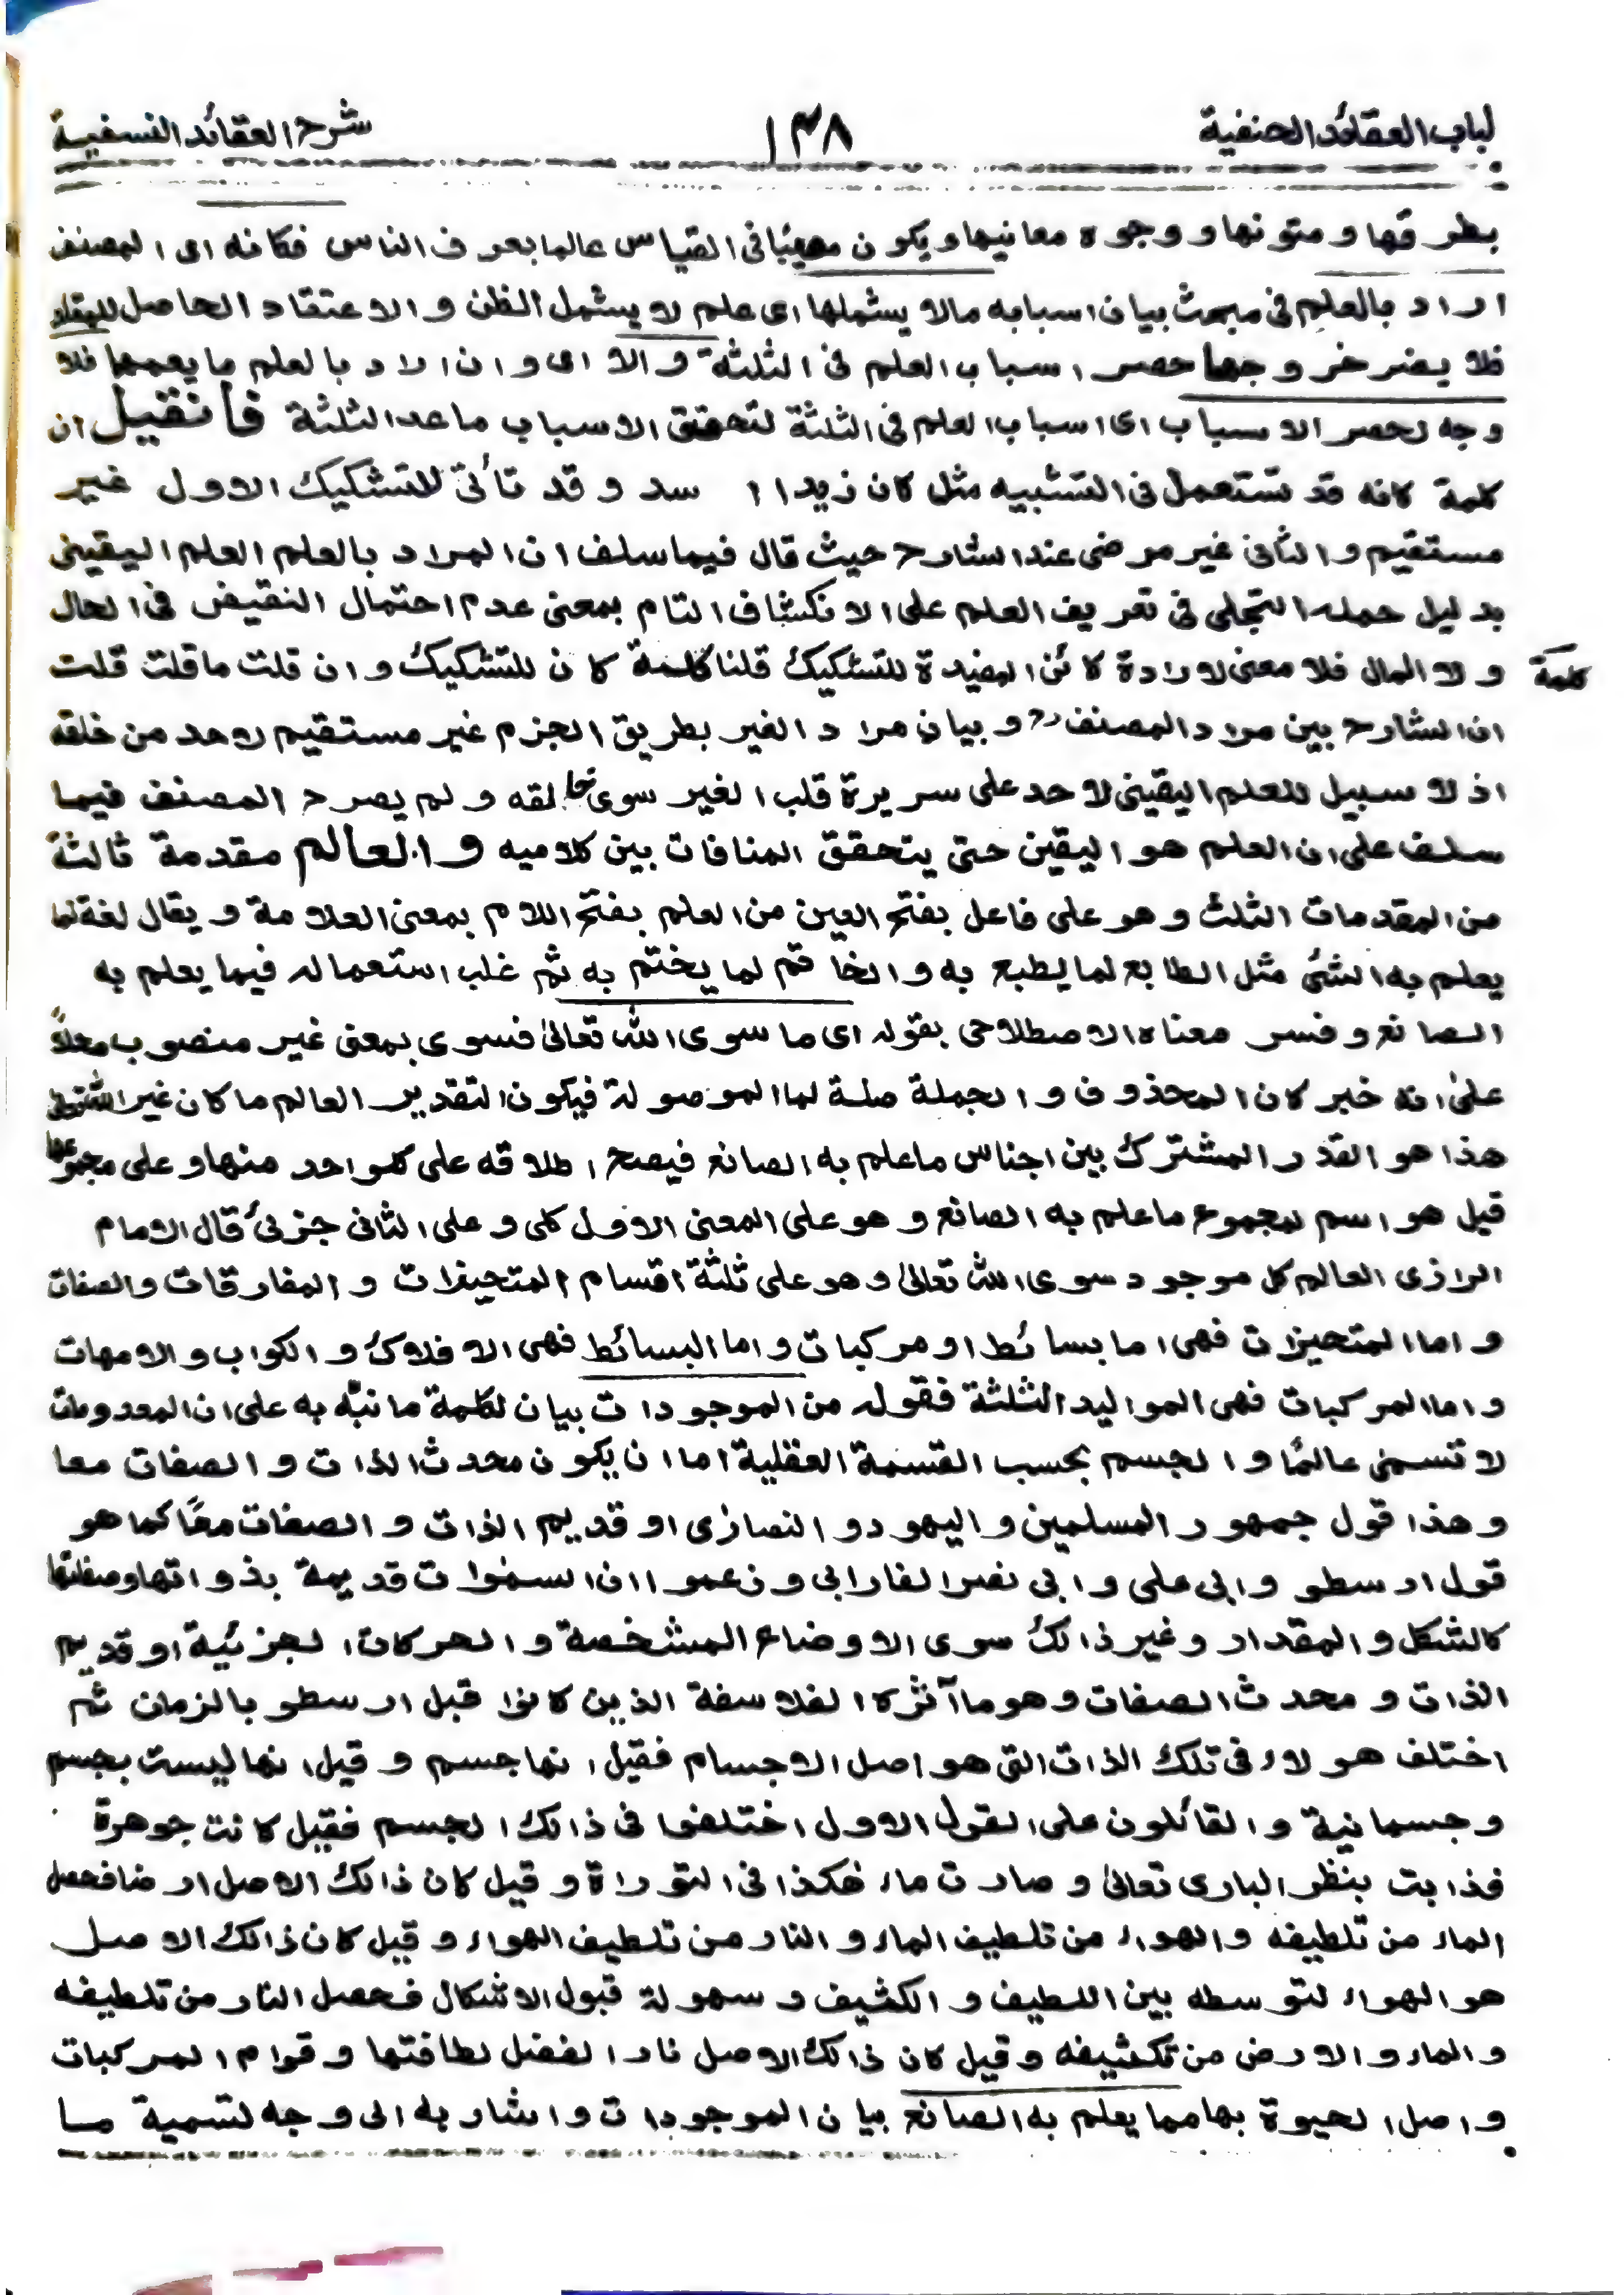 لباب العقائد الحنفية ١٣٨ شرح العقائد النسفية
بطرقها و متونها و وجوه معانيها و يكون مصيبًا فى القياس عالما بعرف الناس فكانه اى المصنف
اراد بالعلم فى مبحث بيان اسبابه مالا يشملها اى علم لا يشمل الظن و الاعتقاد الحاصل للمقلد
فلا يضر خروجها حصر اسباب العلم فى الثلثة و الا اى و ان اراد بالعلم ما يعمهما فلا
وجه لحصر الاسباب اى اسباب العلم فى الثلثة لتحقق الاسباب ما عدا الثلثة فأنقيل ان
كلمة كانه قد تستعمل فى التشبيه مثل كان زيدا اسد و قد تأتى للتشكيك الاول غير
مستقيم و الثانى غير مرضى عند الشارح حيث قال فيما سلف ان المراد بالعلم العلم اليقينى
بدليل حمله التجلى فى تعريف العلم على الانكشاف التام بمعنى عدم احتمال النقيض فى الحال
و لا المال فلا معنى لارادة كائن المفيدة للتشكيك قلنا كلمة كان للتشكيك و ان قلت ما قلت قلت
كلمة
ان الشارح بين مراد المصنف رح و بيان مراد الغير بطريق الجزم غير مستقيم لاحد من خلقه
اذ لا سبيل للعلم اليقينى لاحد على سريرة قلب الغير سوى خالقه و لم يصرح المصنف فيما
سلف على ان العلم هو اليقين حتى يتحقق المنافات بين كلاميه و العالم مقدمة ثالثة
من المقدمات الثلث و هو على فاعل بفتح العين من العلم بفتح اللام بمعنى العلامة و يقال لغة لما
يعلم به الشئ مثل الطابع لما يطبع به و الخاتم لما يختم به ثم غلب استعماله فيما يعلم به
الصانع و فسر معناه الاصطلاحى بقوله اى ما سوى الله تعالىٰ فسوى بمعنى غير منصوب محلاً
علىٰ انه خبر كان المحذوف و الجملة صلة لما الموصولة فيكون التقدير العالم ما كان غير الله تعالى
هذا هو القدر المشترك بين اجناس ما علم به الصانع فيصح اطلاقه على كلواحد منها و على مجموعها
قيل هو اسم لمجموع ما علم به الصانع و هو على المعنى الاول كلى و على الثانى جزئى قال الامام
الرازى العالم كل موجود سوى الله تعالىٰ و هو على ثلثة اقسام المتحيزات و المفارقات و الصفات
و اما المتحيزات فهى اما بسائط او مركبات و اما البسائط فهى الافلاك و الكواب و الامهات
و اما المركبات فهى المواليد الثلثة فقوله من الموجودات بيان لكلمة ما نبّه به على ان المعدومات
لا تسمى عالمًا و الجسم بحسب القسمة العقلية اما ان يكون محدث الذات و الصفات معا
و هذا قول جمهور المسلمين و اليهود و النصارٰى او قديم الذات و الصفات معًا كما هو
قول ارسطو و ابى على و ابى نصر الفارابى و زعموا ان السمٰوات قديمة بذواتها و صفاتها
كالشكل و المقدار و غير ذالك سوى الاوضاع المشخصة و الحركات الجزئية او قديم
الذات و محدث الصفات و هو ما آثره الفلاسفة الذين كانوا قبل ارسطو بالزمان ثم
اختلف هولاء فى تلك الذات التى هو اصل الاجسام فقيل انها جسم و قيل انها ليست بجسم
و جسمانية و القائلون على القول الاول اختلفوا فى ذالك الجسم فقيل كانت جوهرة
فذابت بنظر البارى تعالىٰ و صارت ماء هٰكذا فى التوراة و قيل كان ذالك الاصل ارضا فحصل
الماء من تلطيفه و الهواء من تلطيف الماء و النار من تلطيف الهواء و قيل كان ذالك الاصل
هو الهواء لتوسطه بين اللطيف و الكثيف و سهولة قبول الاشكال فحصل النار من تلطيفه
و الماء و الارض من تكثيفه و قيل كان ذالك الاصل نارا لفضل لطافتها و قوام المركبات
و اصل الحيوة بها مما يعلم به الصانع بيان الموجودات و اشار به الى وجه تسمية ما